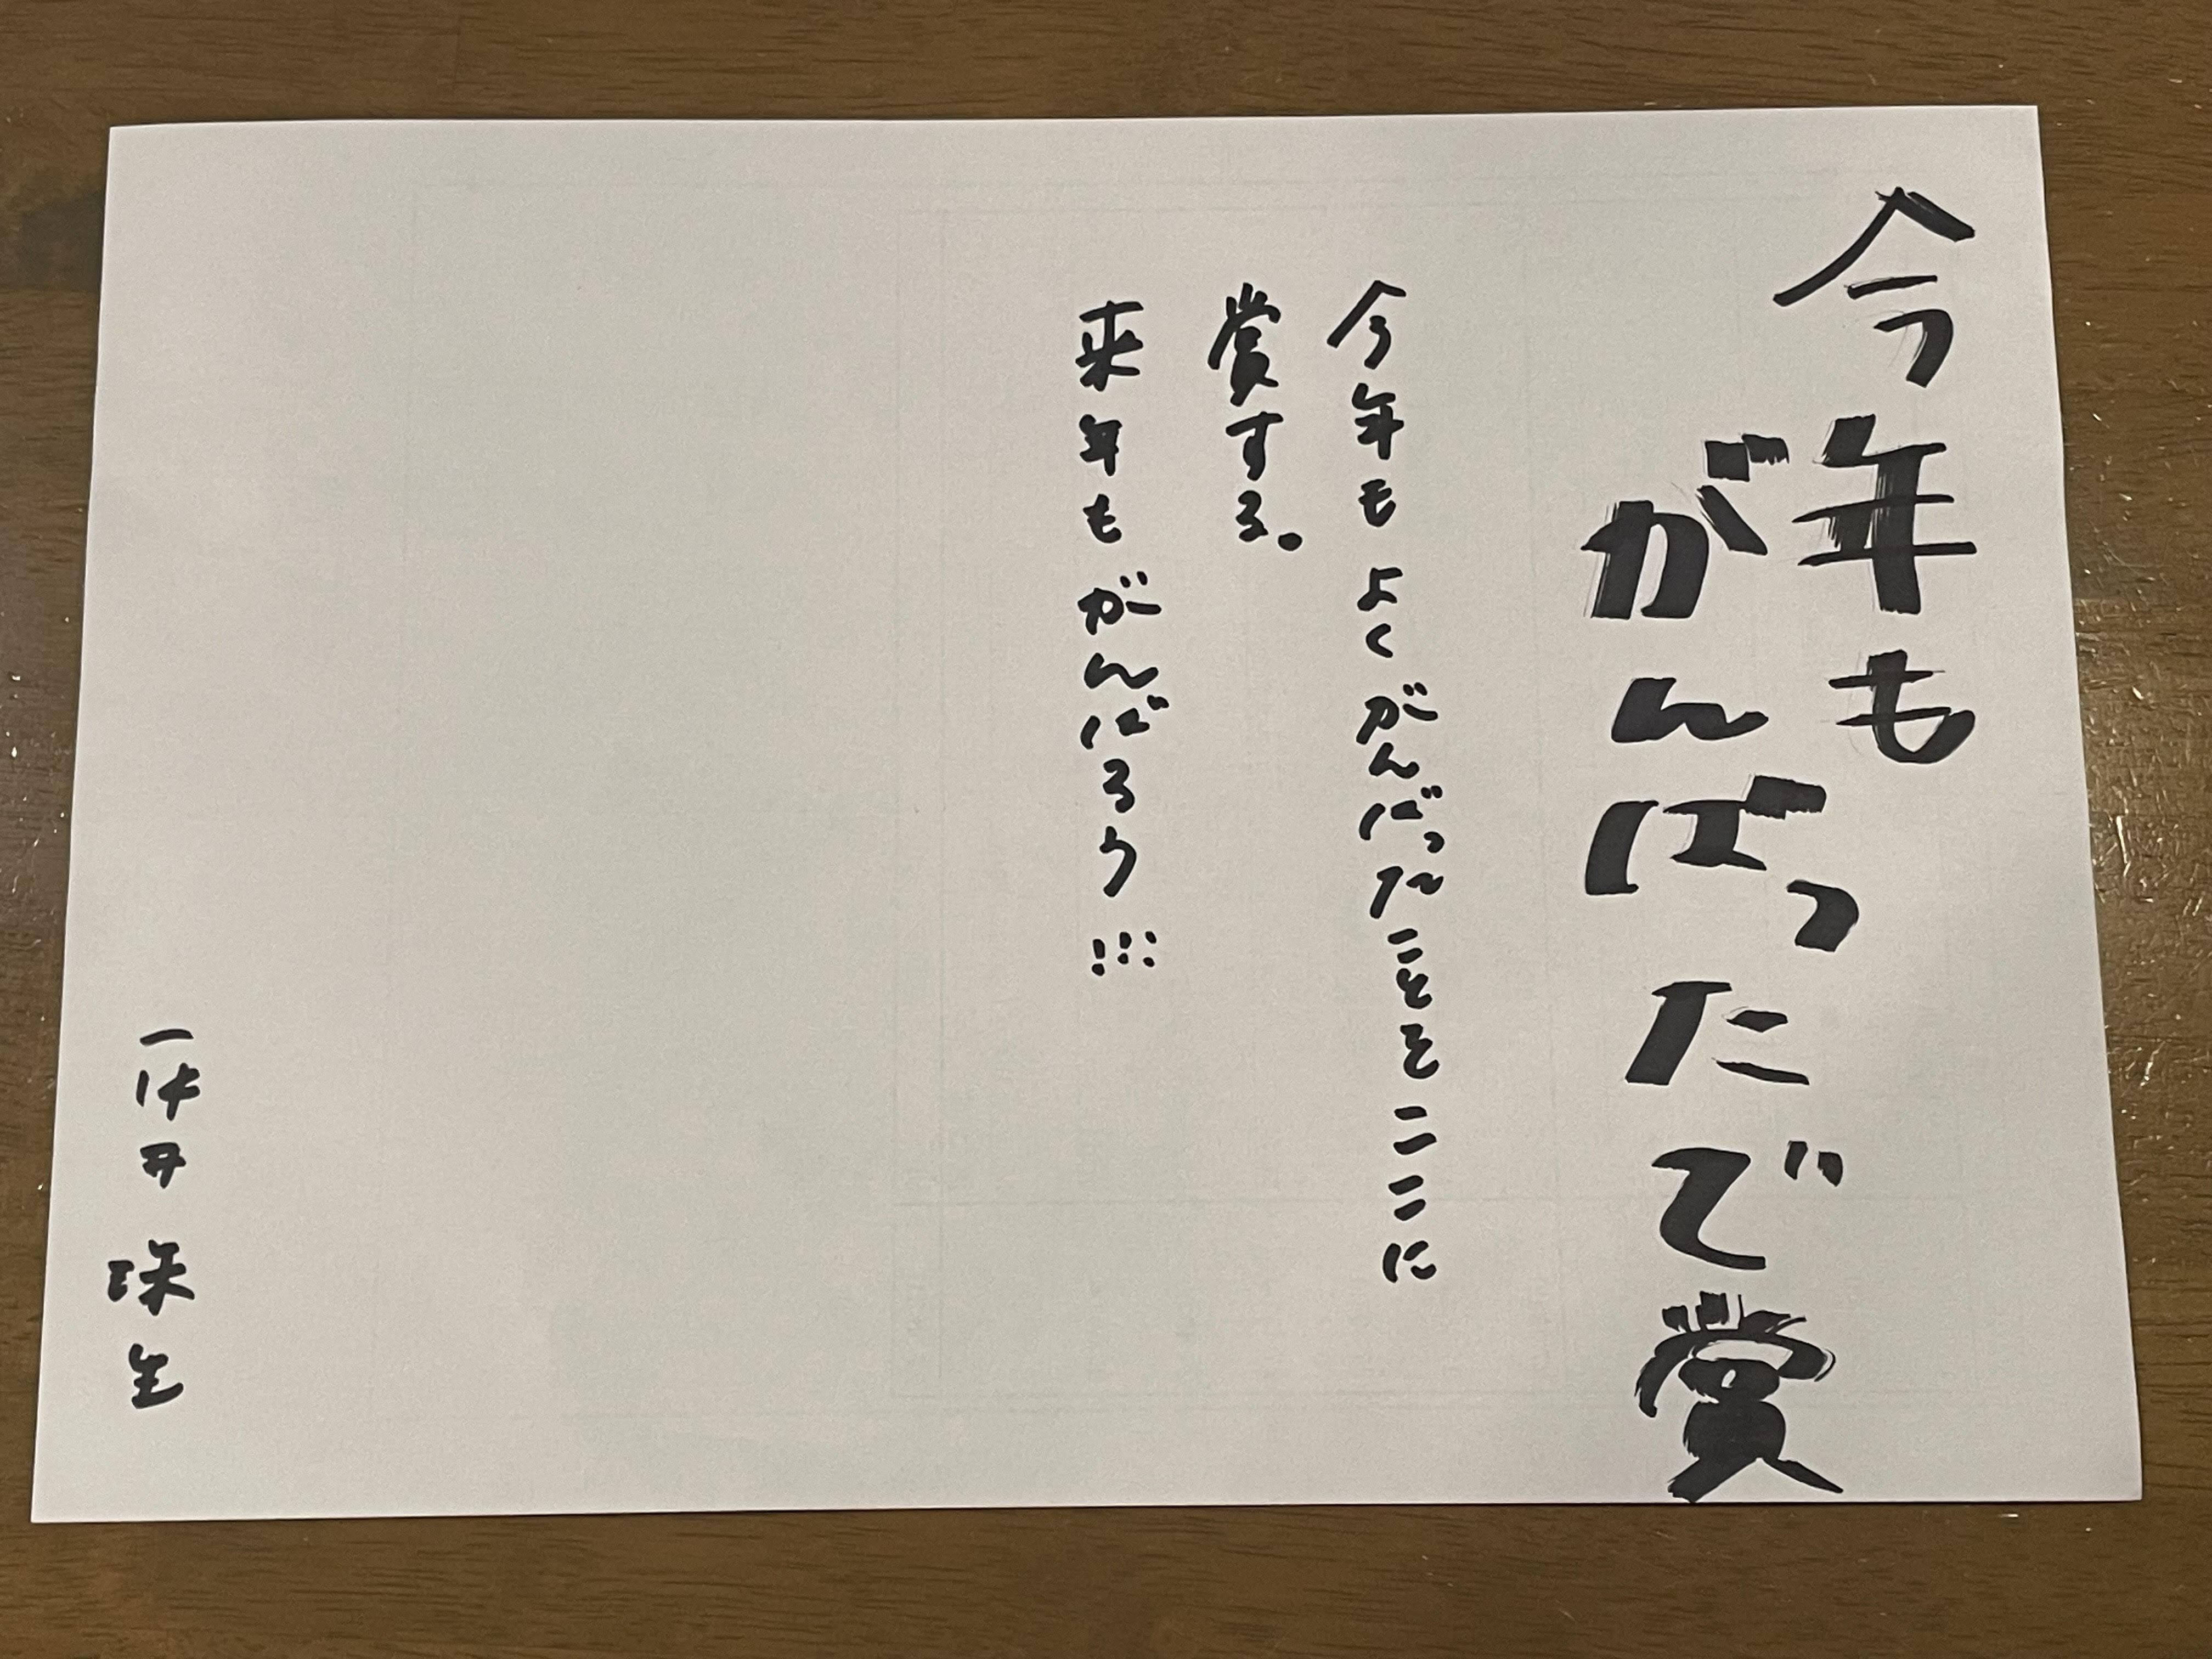 今年も
がんばったで賞
今年もよくがんばったことをここに
賞する。
来年もがんばろう!!!